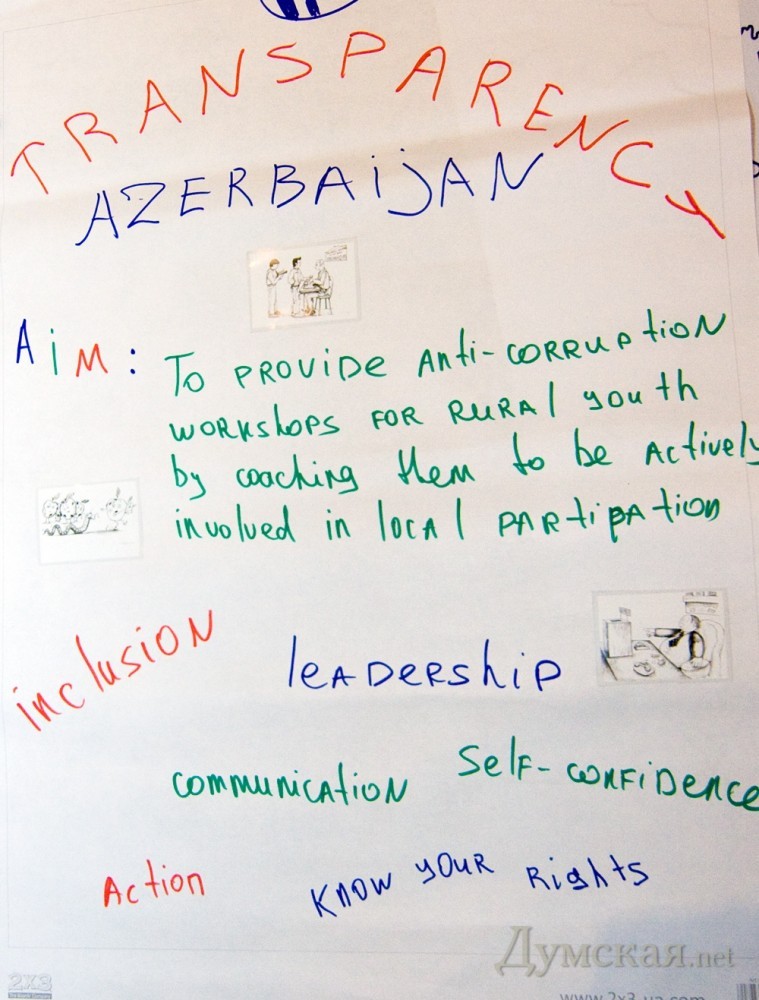 TRANSPARENCY
AZERBAiJAN
Aim: To PROViDE ANti-CORRUPtiON
WORKshOPS FOR RURAl youth
by coaching them to be ACtively
involved in locAl PARtipAtion
inclusiON
leADERship
Self-CONFiDENCE
COMMUNiCAtiON
Action
KNOW YOUR RiGhtS
Думская.net
2X3